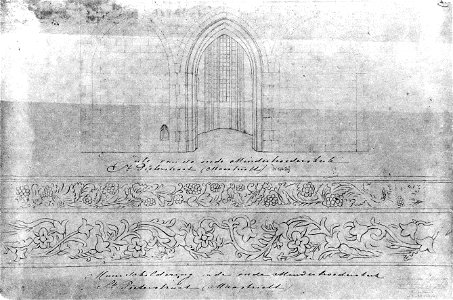 van de oude Minderbroederskerk
St Pieterstraat, Maastricht
Muurschildering oude Minderbroederskerk
St Pieterstraat, Maastricht